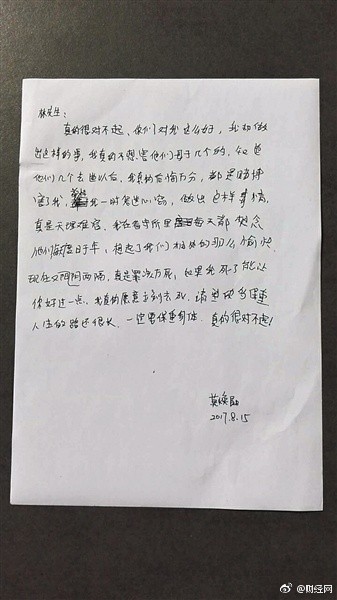 林先生：
真的很对不起、你们对我这么好，我却做
出这样的事，我真的不想害他们母子几个的，知道
他们几个去世以后，我真的后悔万分，都是赌博
害了我，我一时鬼迷心窍，做出这样事情，
真是天理难容。我在看守所里每天都想念
他们母子，想起了我们相处的那么愉快
现在又阴阳两隔，真是罪该万死，如果我死了能让
你好过一点，我真的愿意立刻去死，请您也多保重
人生的路还很长，一定要保重身体，真的很对不起！
莫焕晶
2017.8.15
@财经网